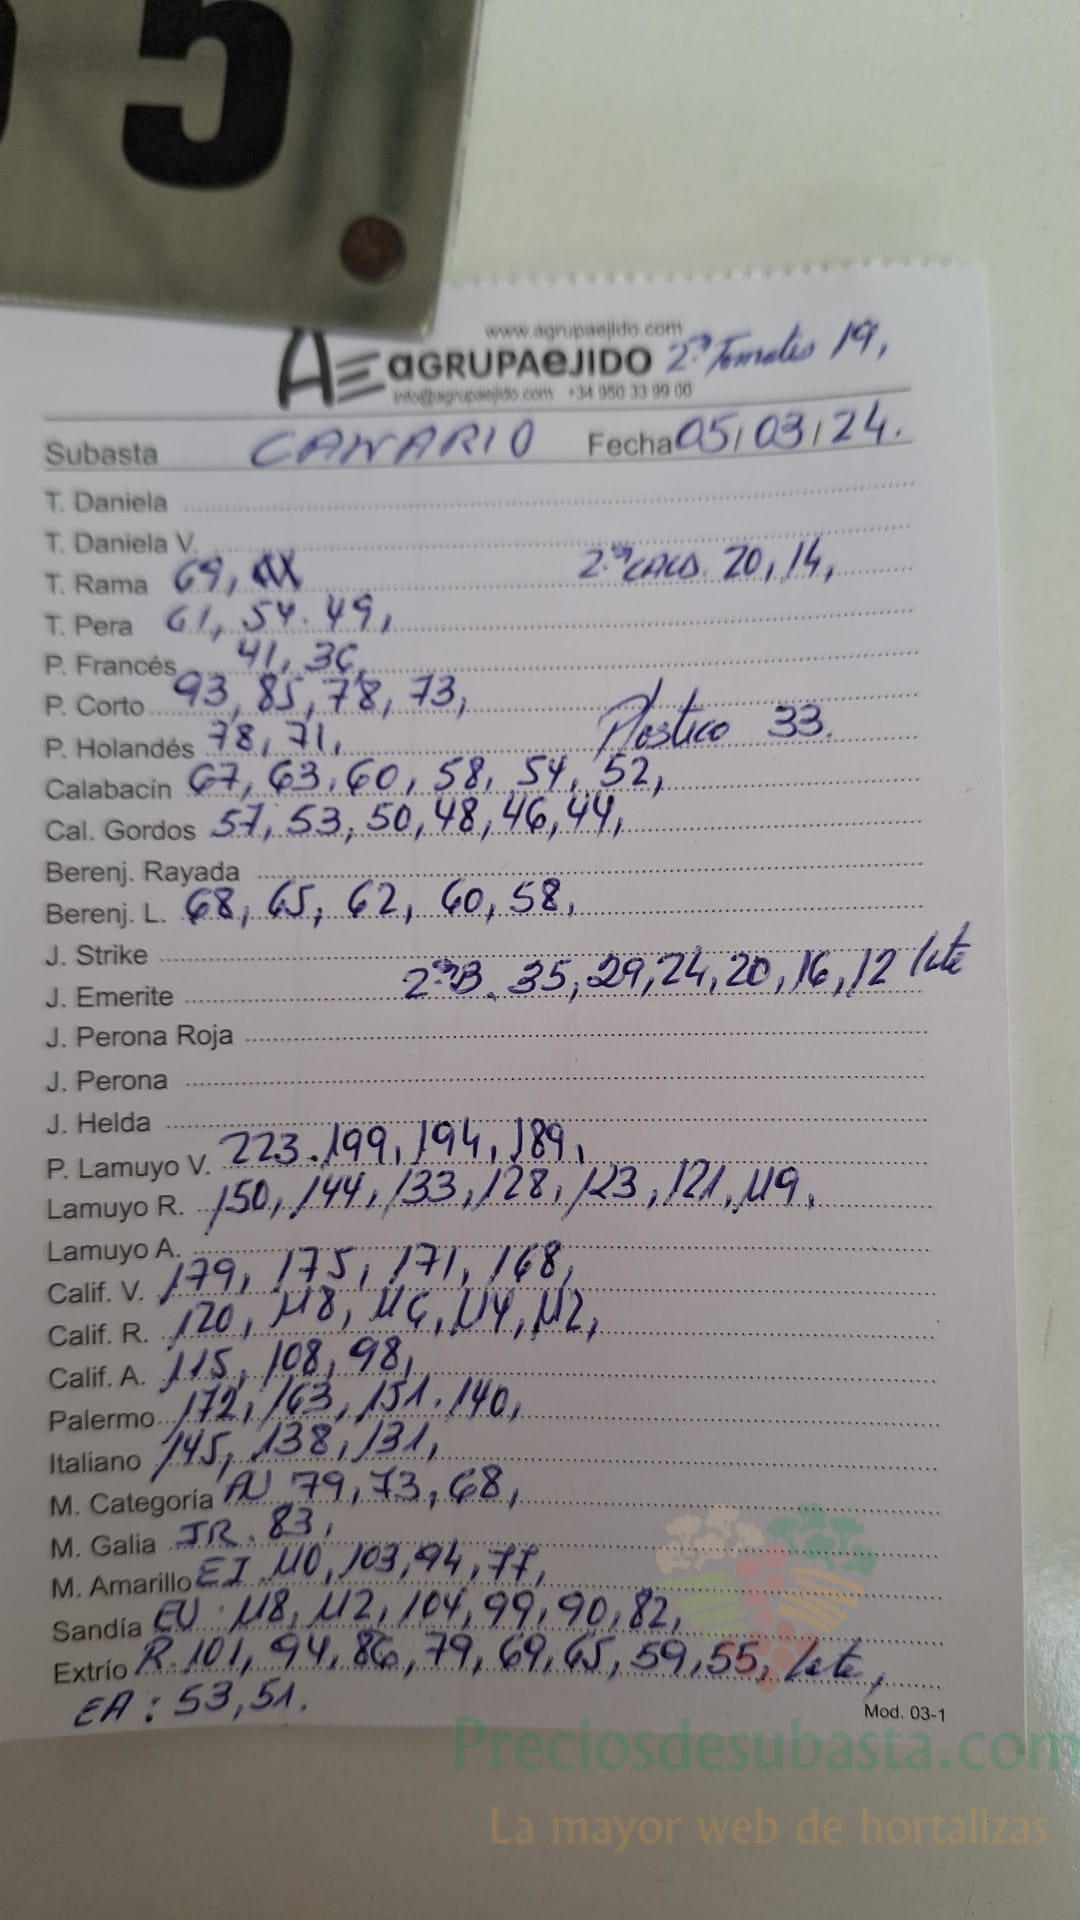 5
www.agrupaejido.com
AE aGRUPAeJIDO 2ªs Tomates 19,
info@agrupaejido.com +34 950 33 99 00
Subasta CANARIO Fecha 05/03/24.
T. Daniela
T. Daniela V.
T. Rama 69, 2ªs CACO. 20, 14,
T. Pera 61, 54. 49,
P. Francés 41, 36,
P. Corto 93, 85, 78, 73,
P. Holandés 78, 71, Plastico 33.
Calabacín 67, 63, 60, 58, 54, 52,
Cal. Gordos 57, 53, 50, 48, 46, 44,
Berenj. Rayada
Berenj. L. 68, 65, 62, 60, 58,
J. Strike
J. Emerite 2ªs B. 35, 29, 24, 20, 16, 12 lete
J. Perona Roja
J. Perona
J. Helda
P. Lamuyo V. 223. 199, 194, 189,
Lamuyo R. 150, 144, 133, 128, 123, 121, 119,
Lamuyo A.
Calif. V. 179, 175, 171, 168,
Calif. R. 120, 118, 116, 114, 112,
Calif. A. 115, 108, 98,
Palermo 172, 163, 151. 140,
Italiano 145, 138, 131,
M. Categoría AU 79, 73, 68,
M. Galia IR. 83,
M. Amarillo EI 110, 103, 94, 77,
Sandía EU. 118, 112, 104, 99, 90, 82,
Extrío R. 101, 94, 86, 79, 69, 65, 59, 55, lete,
EA: 53, 51.
Mod. 03-1
Preciosdesubasta.com
La mayor web de hortalizas